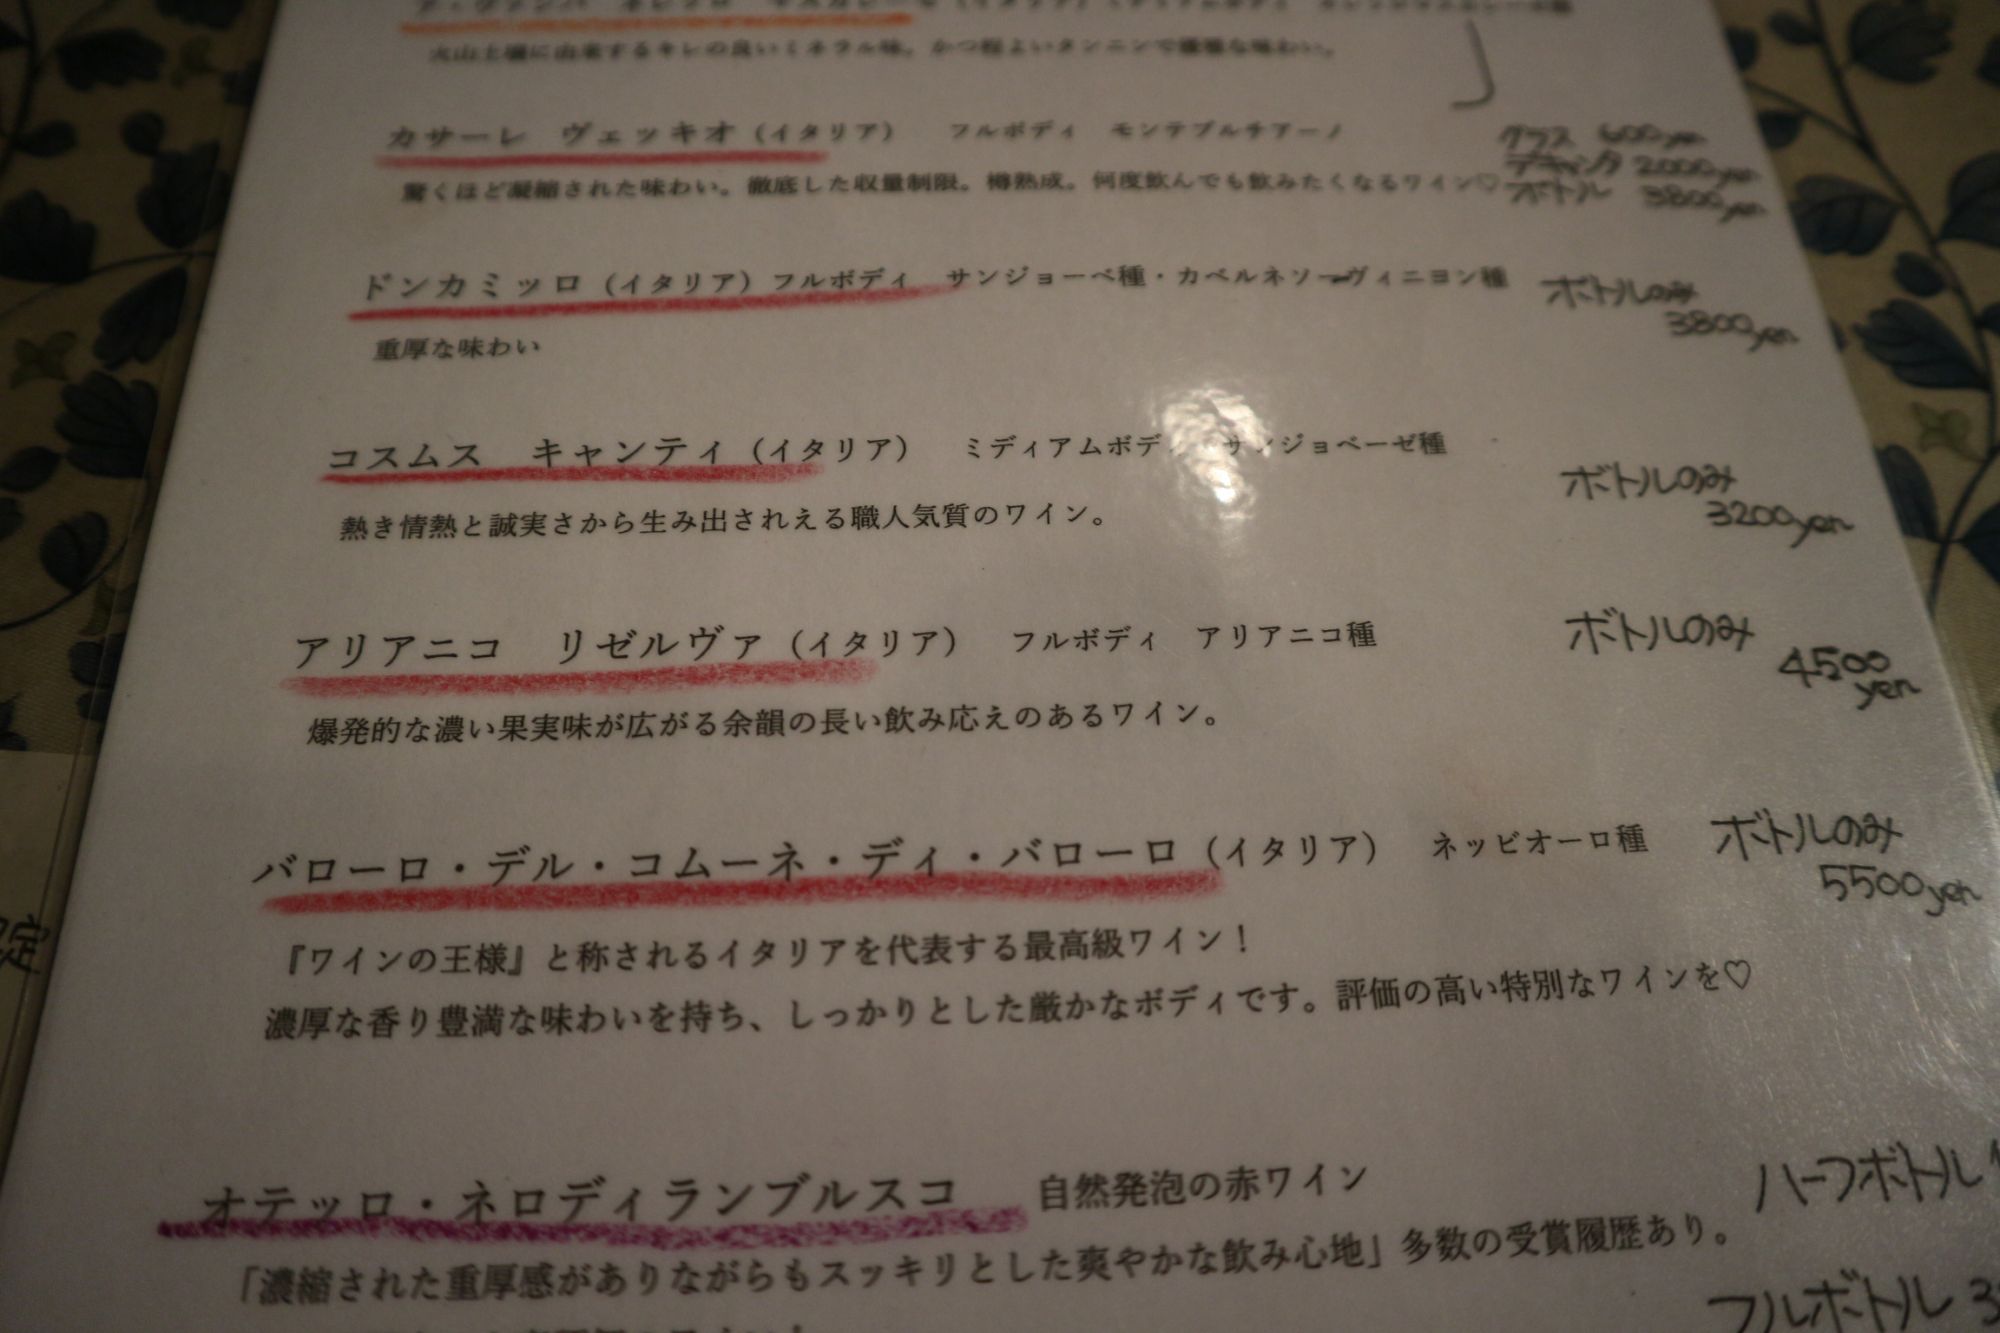 火山土壌に由来するキレの良いミネラル味。かつ程よいタンニンで優雅な味わい。
カサーレ ヴェッキオ（イタリア） フルボディ モンテプルチアーノ
グラス 600yen
デキャンタ 2000yen
ボトル 3800yen
驚くほど凝縮された味わい。徹底した収量制限。樽熟成。何度飲んでも飲みたくなるワイン♡
ドンカミッロ（イタリア）フルボディ サンジョーベ種・カベルネソーヴィニヨン種
ボトルのみ
3800yen
重厚な味わい
コスムス キャンティ（イタリア） ミディアムボディ サンジョベーゼ種
ボトルのみ
3200yen
熱き情熱と誠実さから生み出されえる職人気質のワイン。
アリアニコ リゼルヴァ（イタリア） フルボディ アリアニコ種
ボトルのみ
4500
yen
爆発的な濃い果実味が広がる余韻の長い飲み応えのあるワイン。
バローロ・デル・コムーネ・ディ・バローロ（イタリア） ネッビオーロ種
ボトルのみ
5500yen
『ワインの王様』と称されるイタリアを代表する最高級ワイン！
濃厚な香り豊満な味わいを持ち、しっかりとした厳かなボディです。評価の高い特別なワインを♡
オテッロ・ネロディランブルスコ 自然発泡の赤ワイン
ハーフボトル
「濃縮された重厚感がありながらもスッキリとした爽やかな飲み心地」多数の受賞履歴あり。
フルボトル
定